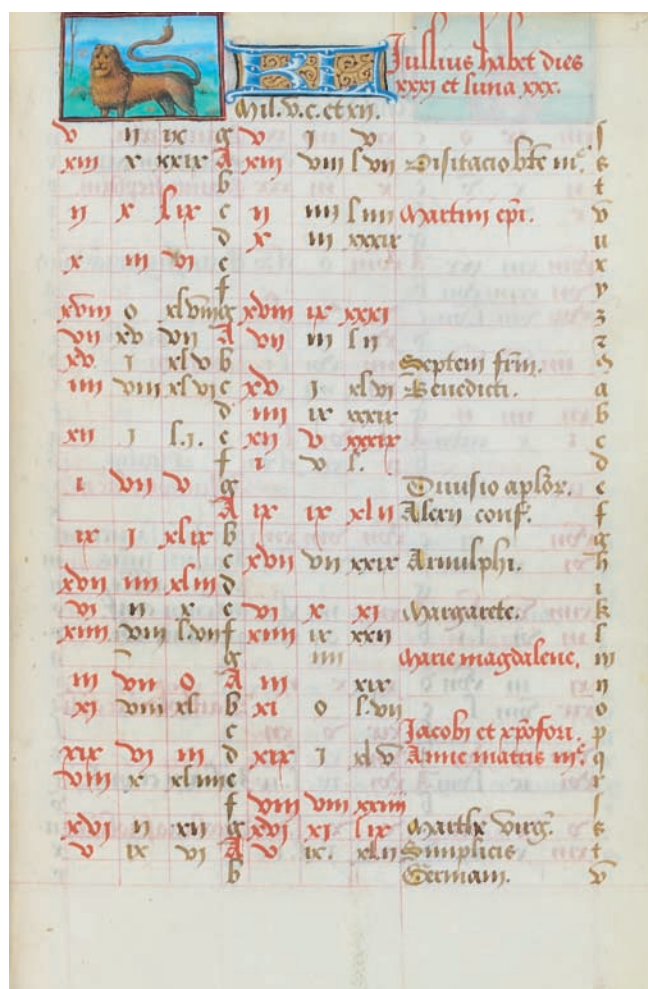 KL Jullius habet dies
xxxi et luna xxx.
Mil.v.c.et xii.
v ii ix g v i v s
xiii x xxix A xiii viii l vii Visitacio bte m. s
b t
ii x l ix c ii iiii l iiii Martini epi. v
d x iii xxxix u
x iii vi e x
f y
xviii o xl viii g xviii ix xxxi z
vii xv vii A vii iii l ii
xv i xl v b Septem frm.
iiii viii xl vi c xv i xl vi Benedicti. a
d iiii ix xxxix b
xii i l.i. e xii v xxxix c
f i v l. d
i vii v g Divisio aplor. e
A ix ix xl ii Alexii conf. f
ix i xl ix b g
c xvii vii xxix Arnulphi. h
xvii iiii xl iii d i
vi ii x e vi x xi Margarete. k
xiiii viii l.vii f xiiii ix xxii l
g iiii Marie magdalene. m
iii vii o A iii xix n
xi viii xl b xi o l.vii o
c Jacobi et xpofori. p
xix vi iii d xix i xl v Anne matris m. q
viii x xl iiii e r
f viii viii xxiii s
xvi ii xii g xvi xi l ix Marthe virg. s
v ix vi A v ix. xl ii Simplicis t
b Germani. v